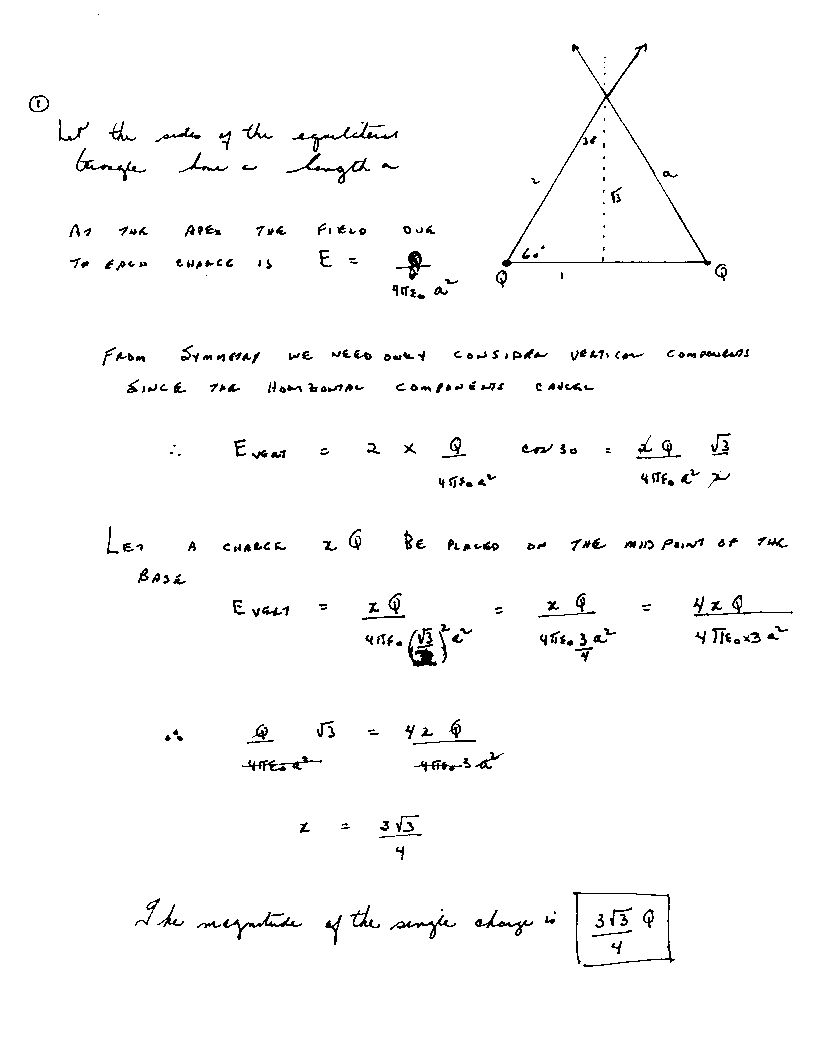 ①
Let the sides of the equilateral
triangle have a length a
30
2
a
√3
60°
Q
Q
1
AT THE APEX THE FIELD DUE
TO EACH CHARGE IS E = Q / 4πε₀ a²
FROM SYMMETRY WE NEED ONLY CONSIDER VERTICAL COMPONENTS
SINCE THE HORIZONTAL COMPONENTS CANCEL
∴ E VERT = 2 × Q / 4πε₀ a² cos 30 = 2 Q / 4πε₀ a² √3 / 2
LET A CHARGE x Q BE PLACED ON THE MID POINT OF THE
BASE
E VERT = x Q / 4πε₀ (√3 / 2)² a² = x Q / 4πε₀ 3/4 a² = 4 x Q / 4πε₀ × 3 a²
∴ Q / 4πε₀ a² √3 = 4 x Q / 4πε₀ 3 a²
x = 3√3 / 4
The magnitude of the single charge is 3√3 / 4 Q